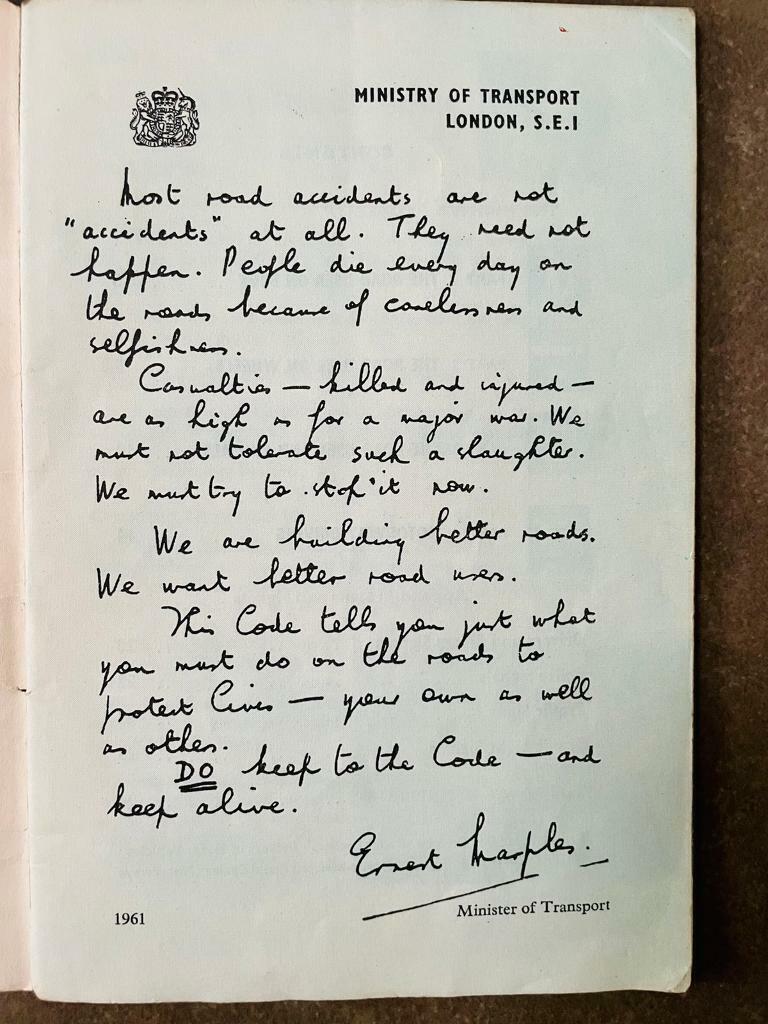 MINISTRY OF TRANSPORT
LONDON, S.E.1
Most road accidents are not
"accidents" at all. They need not
happen. People die every day on
the roads because of carelessness and
selfishness.
Casualties — killed and injured —
are as high as for a major war. We
must not tolerate such a slaughter.
We must try to stop it now.
We are building better roads.
We want better road users.
This Code tells you just what
you must do on the roads to
protect lives — your own as well
as others.
DO keep to the Code — and
keep alive.
Ernest Marples.
1961
Minister of Transport